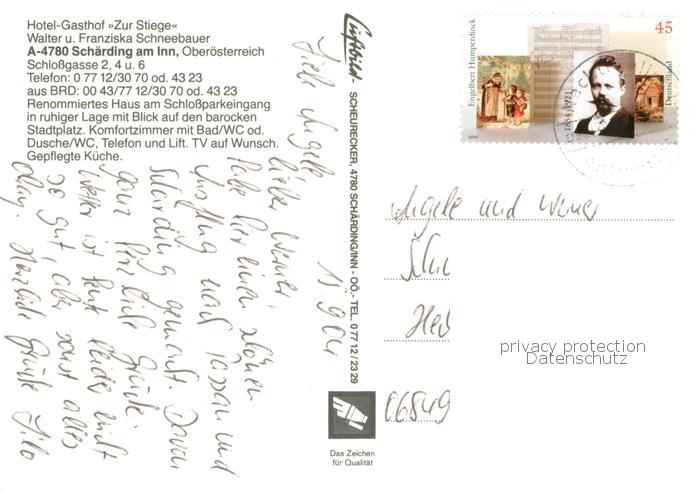 Hotel-Gasthof »Zur Stiege«
Walter u. Franziska Schneebauer
A-4780 Schärding am Inn, Oberösterreich
Schloßgasse 2, 4 u. 6
Telefon: 0 77 12/30 70 od. 43 23
aus BRD: 00 43/77 12/30 70 od. 43 23
Renommiertes Haus am Schloßparkeingang
in ruhiger Lage mit Blick auf den barocken
Stadtplatz. Komfortzimmer mit Bad/WC od.
Dusche/WC, Telefon und Lift. TV auf Wunsch.
Gepflegte Küche.
11.9.04
Liebe Angele
lieber Werner,
habe hier einen schönen
Ausflug nach Passau und
Schärding gemacht. Davon
ganz herzliche Grüße.
Wetter ist heute leider nicht
so gut, aber sonst alles
okay. Herzliche Grüße
Luftbild-
SCHEURECKER, 4780 SCHÄRDING/INN - OÖ. - TEL. 0 77 12 / 23 29
Das Zeichen
für Qualität
Engelbert Humperdinck
45
Deutschland
1854-1921
2004
Angele und Werner
06849
privacy protection
Datenschutz